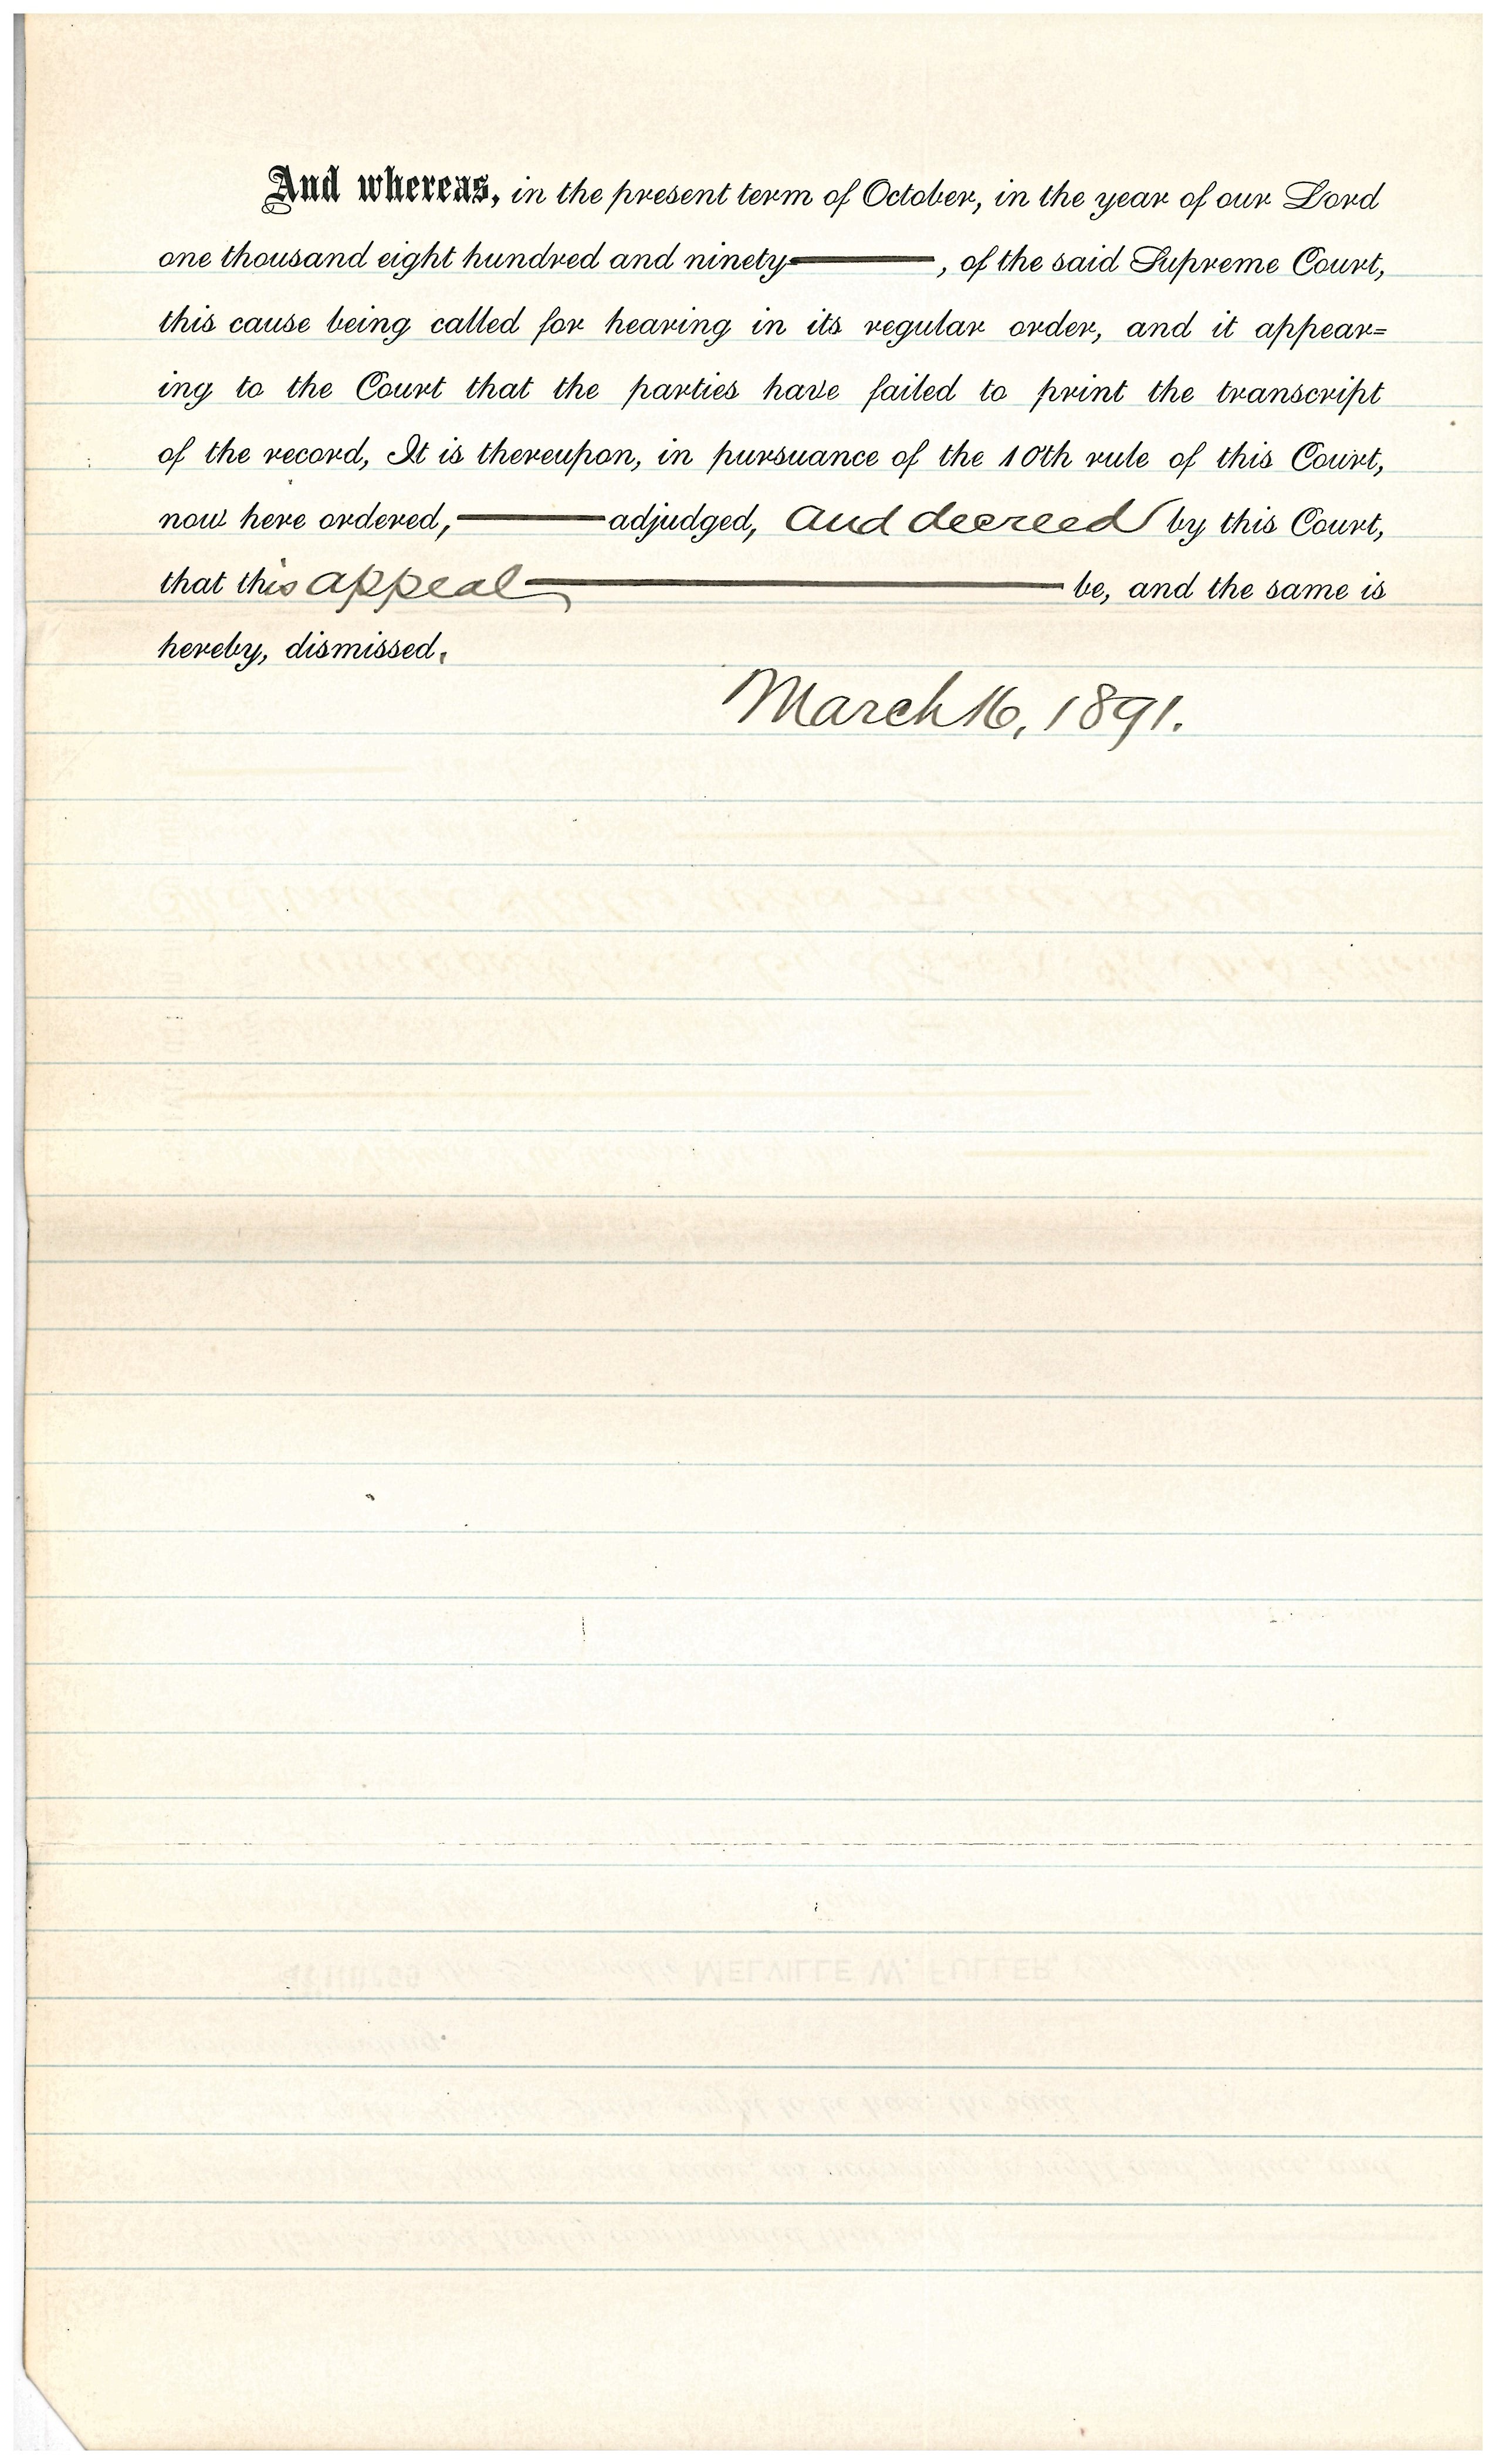 And whereas, in the present term of October, in the year of our Lord
one thousand eight hundred and ninety———, of the said Supreme Court,
this cause being called for hearing in its regular order, and it appear=
ing to the Court that the parties have failed to print the transcript
of the record, It is thereupon, in pursuance of the 10th rule of this Court,
now here ordered,———adjudged, and decreed by this Court,
that this appeal——————be, and the same is
hereby, dismissed.
March 16, 1891.
MELVILLE W. FULLER,